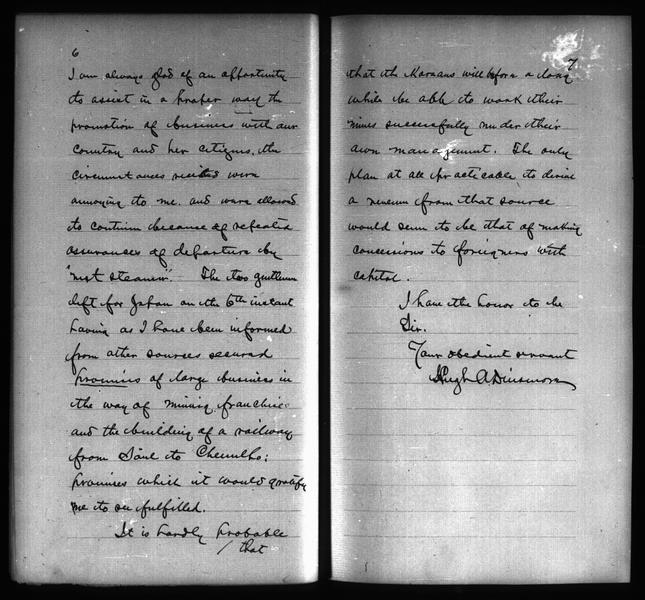 6
I am always glad of an opportunity
to assist in a proper way the
promotion of business with our
country and her citizens, the
circumstances recited were
annoying to me and were allowed
to continue because of repeated
assurances of departure by
"next steamer". The two gentlemen
left for Japan on the 6th instant
having as I have been informed
from other sources secured
promises of large business in
the way of mining franchise
and the building of a railway
from Söul to Chemulpo:
promises which it would gratify
me to see fulfilled.
It is hardly probable
/ that
7
that the Koreans will before a long
while be able to work their
mines successfully under their
own management. The only
plan at all practicable to derive
a revenue from that source
would seem to be that of making
concessions to foreigners with
capital.
I have the honor to be
Sir.
Your obedient servant
Hugh A Dinsmore